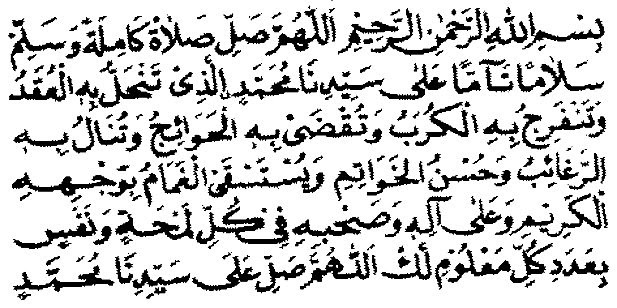 بِسْمِ اللهِ الرَّحْمٰنِ الرَّحِيْمِ اَللّٰهُمَّ صَلِّ صَلَاةً كَامِلَةً وَسَلِّمْ
سَلَامًا تَآمًّا عَلٰى سَيِّدِنَا مُحَمَّدِ الَّذِيْ تَنْحَلُّ بِهِ الْعُقَدُ
وَتَنْفَرِجُ بِهِ الْكُرَبُ وَتُقْضَىْ بِهِ الْحَوَائِجُ وَتُنَالُ بِهِ
الرَّغَائِبُ وَحُسْنُ الْخَوَاتِمِ وَيُسْتَسْقَى الْغَمَامُ بِوَجْهِهِ
الْكَرِيْمِ وَعَلٰى آلِهِ وَصَحْبِهِ فِيْ كُلِّ لَمْحَةٍ وَنَفَسٍ
بِعَدَدِ كُلِّ مَعْلُوْمٍ لَّكَ اَللّٰهُمَّ صَلِّ عَلَى سَيِّدِنَا مُحَمَّدٍ